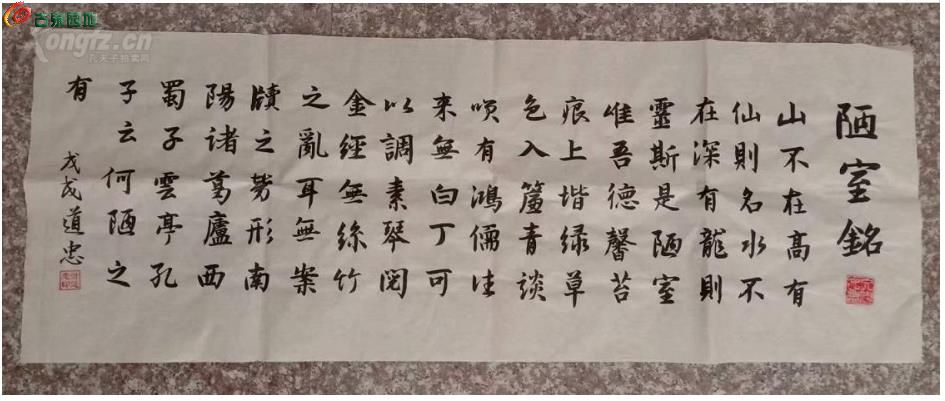 古泉园地
Kongfz.cn
孔夫子拍卖网
陋室銘
山不在高有
仙則名水不
在深有龍則
靈斯是陋室
唯吾德馨苔
痕上堦绿草
色入簾青談
咲有鴻儒往
来無白丁可
以調素琴閱
金經無絲竹
之亂耳無案
牘之勞形南
陽诸葛廬西
蜀子雲亭孔
子云何陋之
有
戊戌道忠